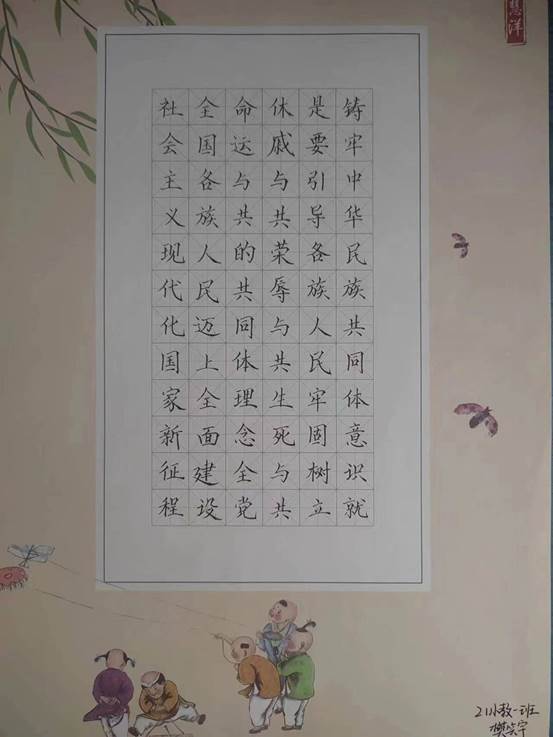 铸牢中华民族共同体意识就
是要引导各族人民牢固树立
休戚与共荣辱与共生死与共
命运与共的共同体理念全党
全国各族人民迈上全面建设
社会主义现代化国家新征程
21小教一班